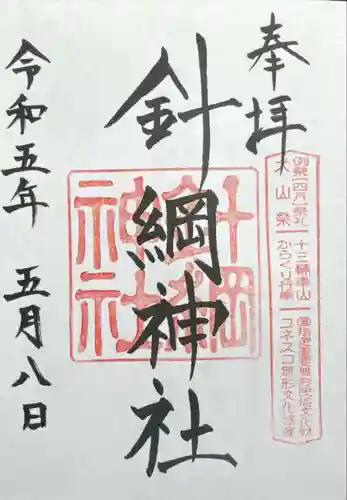 奉拝
針綱神社
令和五年 五月八日
針綱
神社
例祭【四月】祭礼
犬山祭
十三輌車山
からくり行事
国指定重要無形民俗文化財
ユネスコ無形文化遺産